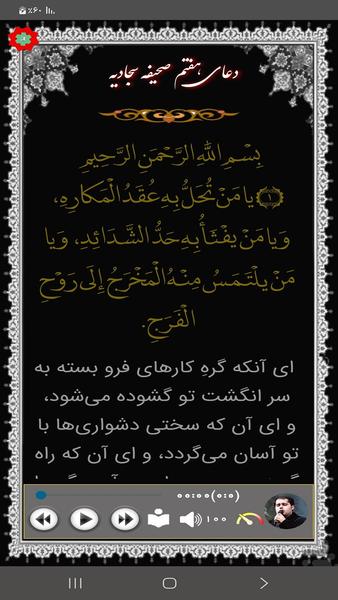 ٪۶۰
دعای هفتم صحیفه سجادیه
بِسْمِ اللَّهِ الرَّحْمَنِ الرَّحِيمِ
﴿١﴾ يا مَنْ تُحَلُّ بِهِ عُقَدُ الْمَكارِهِ،
وَ يا مَنْ يفْثَأُ بِهِ حَدُّ الشَّدَائِدِ، وَ يا
مَنْ يلْتَمَسُ مِنْهُ الْمَخْرَجُ إِلَى رَوْحِ
الْفَرَجِ.
ای آنکه گره کارهای فرو بسته به
سر انگشت تو گشوده می‌شود،
و ای آن که سختی دشواری‌ها با
تو آسان می‌گردد، و ای آن که راه
00:00(0:0)
100